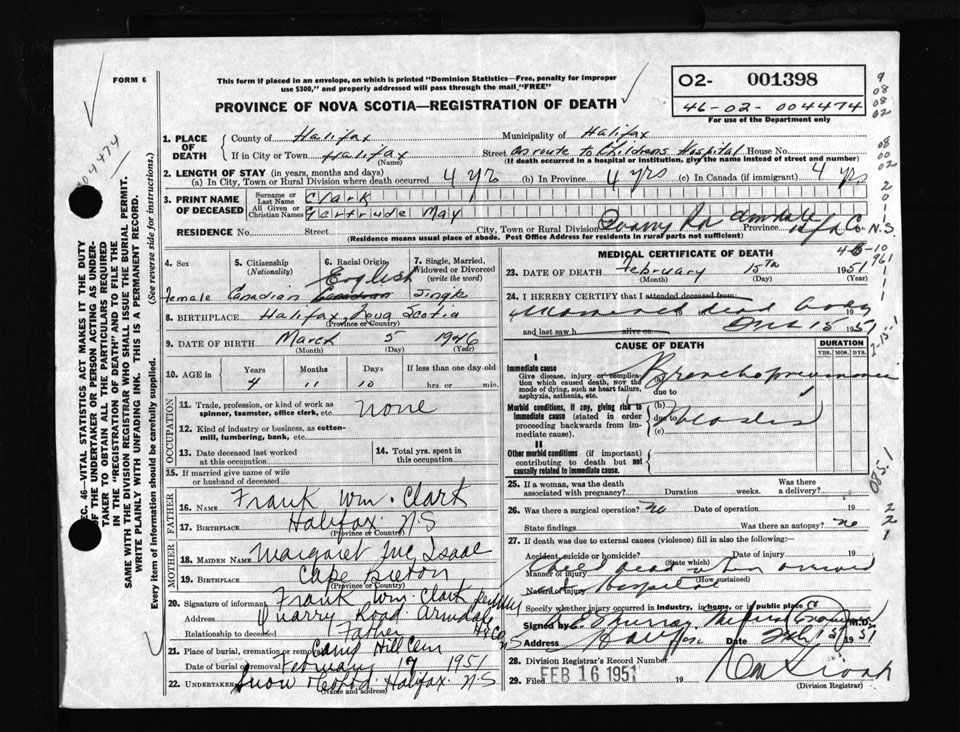 FORM 6
This form if placed in an envelope, on which is printed "Dominion Statistics—Free, penalty for improper
use $300," and properly addressed will pass through the mail "FREE"
PROVINCE OF NOVA SCOTIA—REGISTRATION OF DEATH
O2- 001398
46-02-004474
For use of the Department only
004474
1. PLACE OF DEATH
County of Halifax Municipality of Halifax
If in City or Town Halifax Street en route to Childrens Hospital House No.
(Name) (If death occurred in a hospital or institution, give the name instead of street and number)
2. LENGTH OF STAY (in years, months and days)
(a) In City, Town or Rural Division where death occurred 4 yrs (b) In Province 4 yrs (c) In Canada (if immigrant) 4 yrs
3. PRINT NAME OF DECEASED
Surname or Last Name Clark
All Given or Christian Names Gertrude May
RESIDENCE No. Street City, Town or Rural Division Quarry Rd Armdale Province Hfx Co. N.S.
(Residence means usual place of abode. Post Office Address for residents in rural parts not sufficient)
4. Sex Female
5. Citizenship (Nationality) Canadian
6. Racial Origin English Canadian
7. Single, Married, Widowed or Divorced (write the word) Single
8. BIRTHPLACE Halifax Nova Scotia
(Province or Country)
9. DATE OF BIRTH March 5 1946
(Month) (Day) (Year)
10. AGE in Years Months Days If less than one day old
4 11 10 hrs. or min.
OCCUPATION
11. Trade, profession, or kind of work as spinner, teamster, office clerk, etc. none
12. Kind of industry or business, as cotton-mill, lumbering, bank, etc.
13. Date deceased last worked at this occupation
14. Total yrs. spent in this occupation
15. If married give name of wife or husband of deceased
FATHER
16. NAME Frank Wm. Clark
17. BIRTHPLACE Halifax N.S
(Province or Country)
MOTHER
18. MAIDEN NAME Margaret Isaac
19. BIRTHPLACE Cape Breton
(Province or Country)
20. Signature of informant Frank Wm. Clark
Address Quarry Road Armdale Hfx Co NS
Relationship to deceased Father
21. Place of burial, cremation or removal Camp Hill Cem
Date of burial or removal February 17 1951
22. UNDERTAKER Snow & Co Ltd Halifax N.S
(Name and address)
MEDICAL CERTIFICATE OF DEATH
23. DATE OF DEATH February 15th 1951
(Month) (Day) (Year)
24. I HEREBY CERTIFY that I attended deceased from:
dead body 19
and last saw h alive on 15 1951
CAUSE OF DEATH
DURATION
YRS. MOS. DYS.
I
Immediate cause
Give disease, injury or complication which caused death, not the mode of dying, such as heart failure, asphyxia, asthenia, etc.
(a) Bronchopneumonia
due to
Morbid conditions, if any, giving rise to immediate cause (stated in order proceeding backwards from immediate cause).
(b)
due to
(c)
II
Other morbid conditions (if important) contributing to death but not causally related to immediate cause.
25. If a woman, was the death associated with pregnancy? Duration weeks. Was there a delivery?
26. Was there a surgical operation? no Date of operation 19
State findings Was there an autopsy? no
27. If death was due to external causes (violence) fill in also the following:
Accident, suicide or homicide? Date of injury 19
(State which)
Manner of injury Child dead when arrived
(How sustained)
Nature of injury Hospital
Specify whether injury occurred in industry, in home, or in public place
Signed by Murray M.D.
Address Halifax Date Feb 15 1951
28. Division Registrar's Record Number
29. Filed FEB 16 1951 19
(Division Registrar)
SEC. 46—VITAL STATISTICS ACT MAKES IT THE DUTY
OF THE UNDERTAKER OR PERSON ACTING AS UNDERTAKER TO OBTAIN ALL THE PARTICULARS REQUIRED
IN THE "REGISTRATION OF DEATH" AND TO FILE THE
SAME WITH THE DIVISION REGISTRAR WHO SHALL ISSUE THE BURIAL PERMIT.
WRITE PLAINLY WITH UNFADING INK. THIS IS A PERMANENT RECORD.
Every item of information should be carefully supplied. (See reverse side for instructions.)